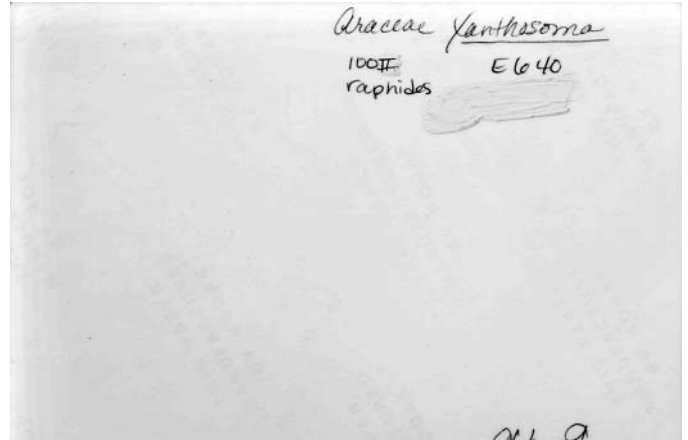 Araceae Xanthosoma
100II E640
raphides